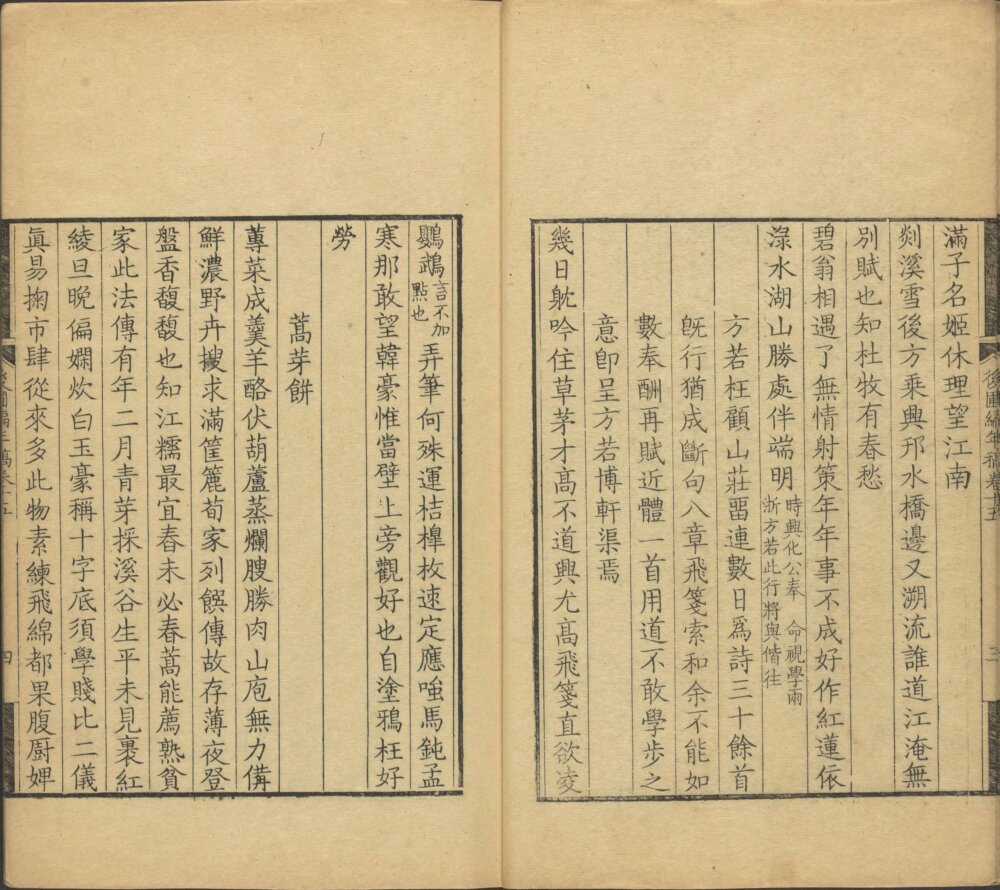 後圃編年稿卷十五
三
滿子名姬休理望江南
剡溪雪後方乘興邗水橋邊又溯流誰道江淹無
別賦也知杜牧有春愁
碧翁相遇了無情射策年年事不成好作紅蓮依
淥水湖山勝處伴端明時興化公奉 命視學兩
浙方若此行將與偕往
方若枉顧山莊畱連數日爲詩三十餘首
旣行猶成斷句八章飛箋索和余不能如
數奉酬再賦近體一首用道不敢學步之
意卽呈方若博軒渠焉
幾日躭吟住草茅才高不道興尤高飛箋直欲凌
鸚鵡言不加
點也弄筆何殊運桔橰枚速定應嗤馬鈍孟
寒那敢望韓豪惟當壁上旁觀好也自塗鴉枉好
勞
蒿芽餅
蓴菜成羹羊酪伏葫蘆蒸爛膄勝肉山庖無力備
鮮濃野卉搜求滿筐簏荀家列饌傳故存薄夜登
盤香馥馥也知江糯最宜舂未必春蒿能薦熟貧
家此法傳有年二月青芽採溪谷生平未見裹紅
綾旦晚偏嫻炊白玉豪稱十字底須學賤比二儀
眞易掬市肆從來多此物素練飛綿都果腹廚婢
後圃編年稿卷十五
四